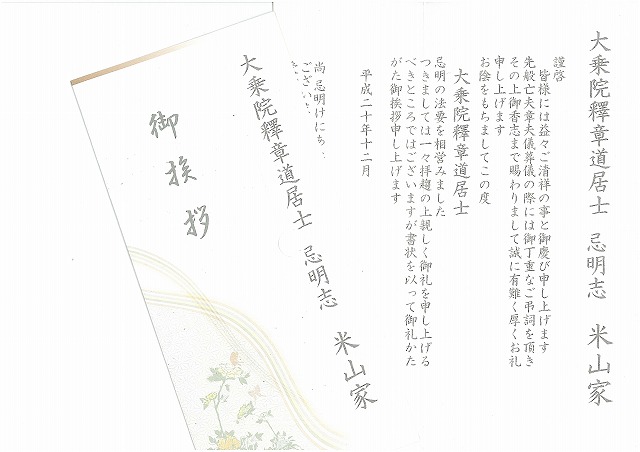 大乗院釋章道居士 忌明志 米山家
謹啓
皆様には益々ご清祥の事と御慶び申し上げます
先般亡夫章夫儀葬儀の際には御丁重なご弔詞を頂き
その上御香志まで賜わりまして誠に有難く厚くお礼
申し上げます
お陰をもちましてこの度
大乗院釋章道居士
忌明の法要を相営みました
つきましては一々拝趨の上親しく御礼を申し上げる
べきところではございますが書状を以って御礼かた
がた御挨拶申し上げます
平成二十年十二月
尚忌明けにち
ござい
大乗院釋章道居士 忌明志 米山家
御挨拶